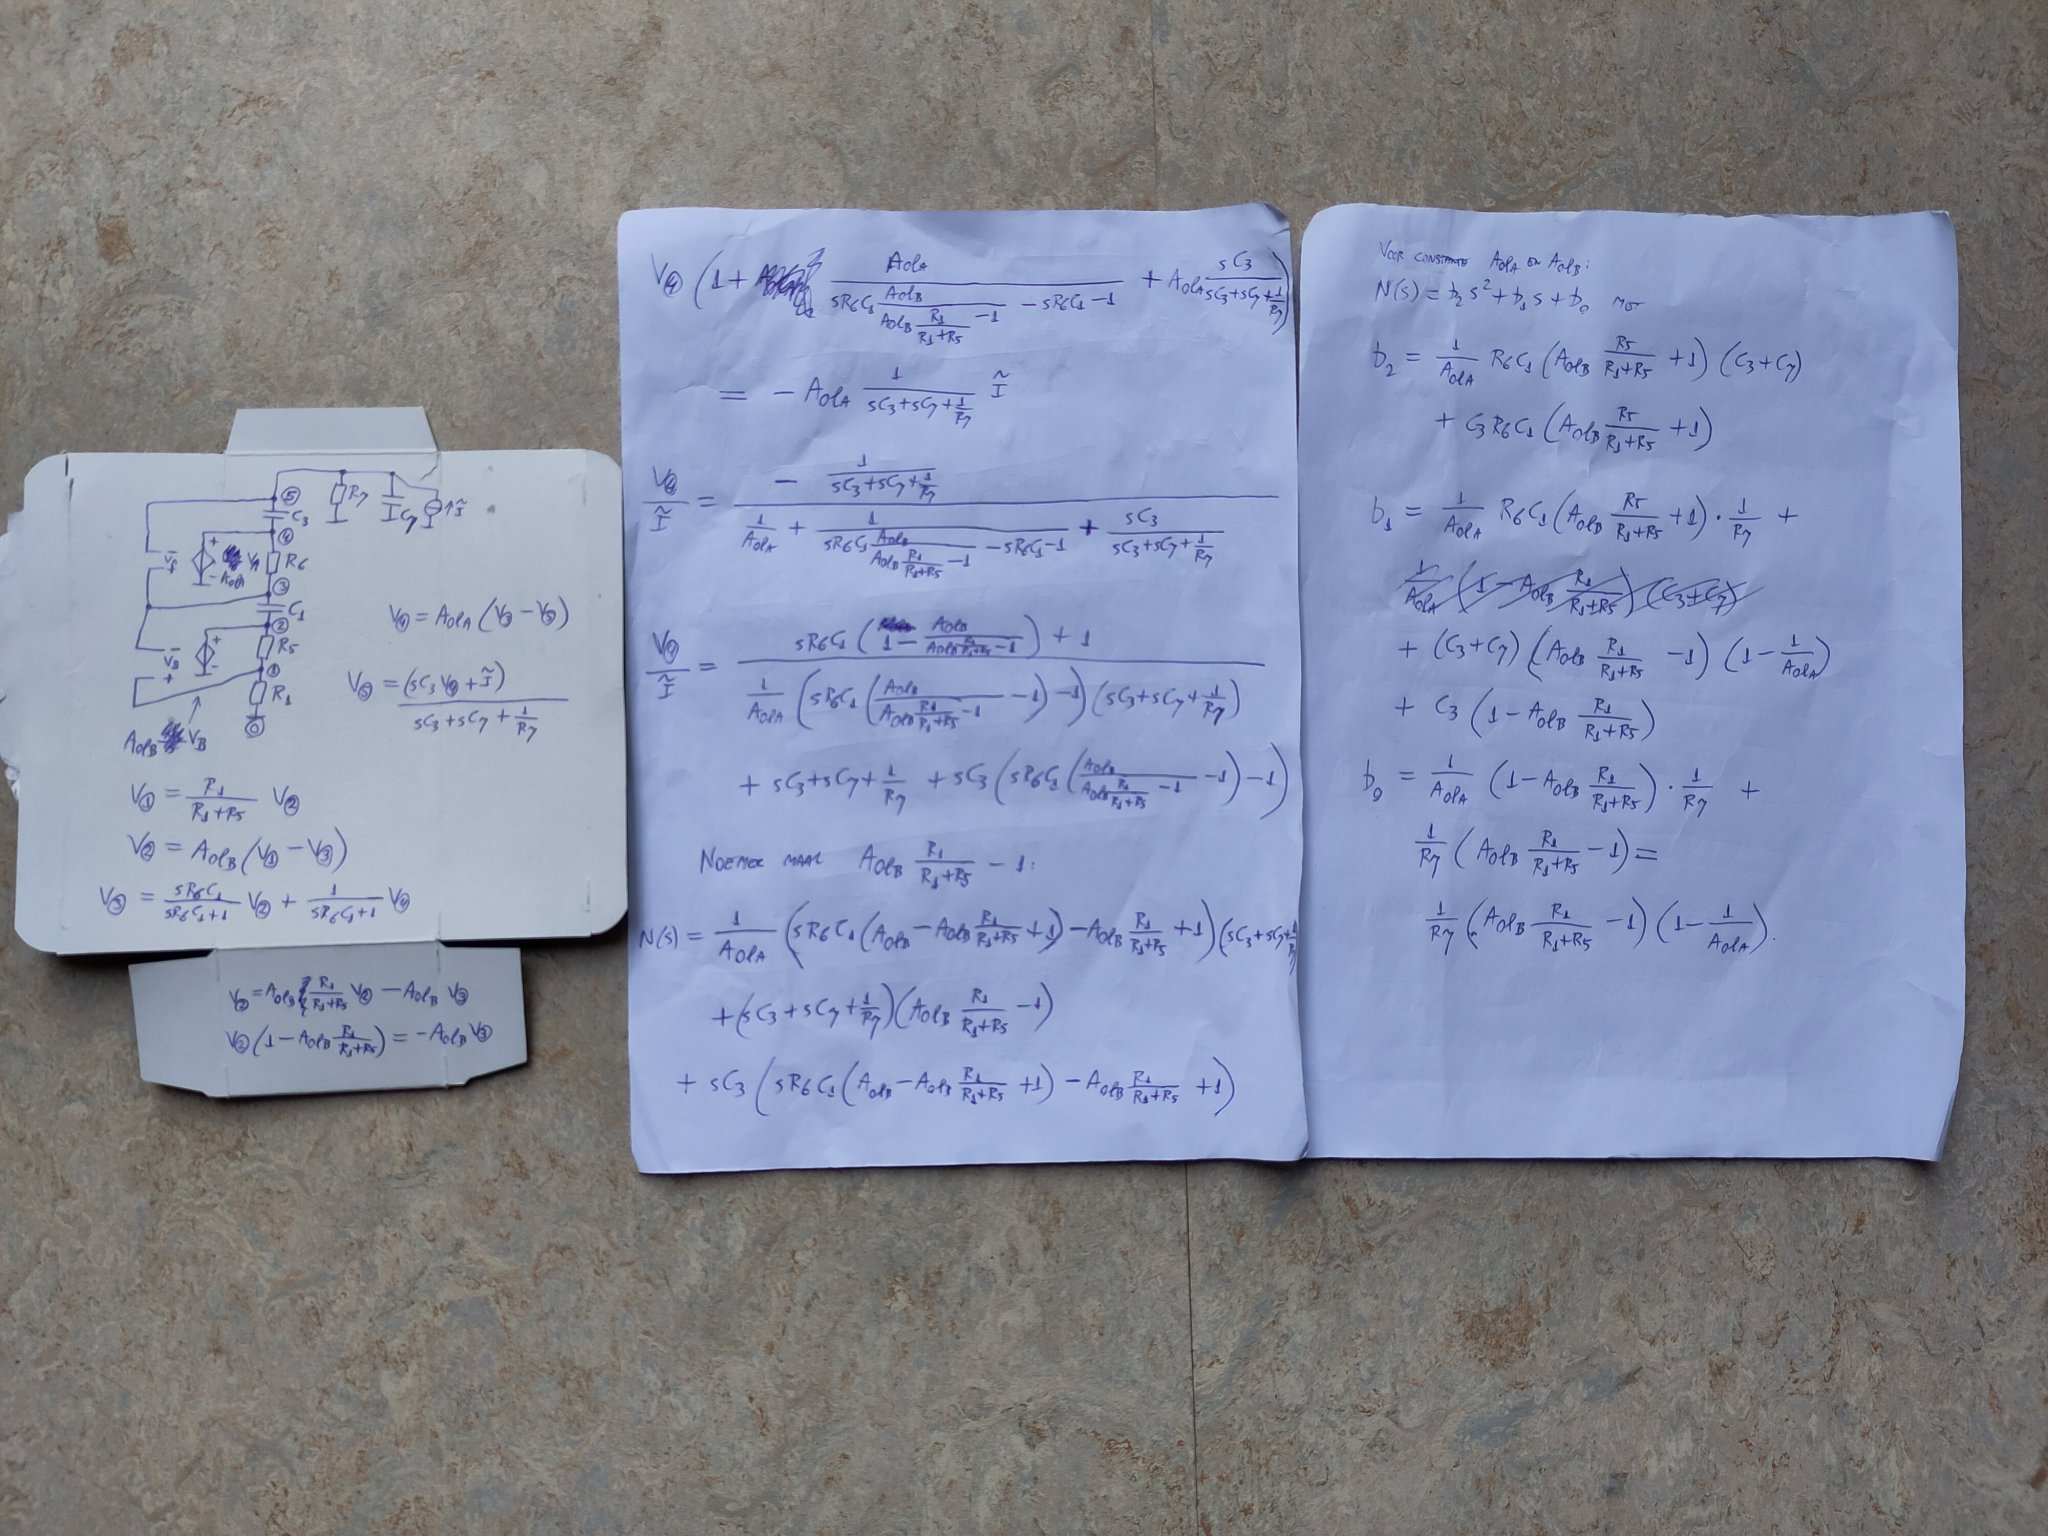 ⑤
R₇
C₇
↑ Ĩ
C₃
④
V_A
+
A_olA
V_A
R₆
-
③
C₁
②
+
R₅
V_B
-
+
①
R₁
0
A_olB V_B
V④ = A_olA (V③ − V⑤)
V⑤ = (sC₃ V④ + Ĩ) / (sC₃ + sC₇ + 1/R₇)
V① = R₁/(R₁+R₅) V②
V② = A_olB (V① − V③)
V③ = sR₆C₁/(sR₆C₁+1) V② + 1/(sR₆C₁+1) V④
V② = A_olB R₁/(R₁+R₅) V② − A_olB V③
V② (1 − A_olB R₁/(R₁+R₅)) = − A_olB V③
V④ (1 + A_olA / (sR₆C₁ A_olB/(A_olB R₁/(R₁+R₅) − 1) − sR₆C₁ − 1) + A_olA sC₃/(sC₃+sC₇+1/R₇))
= − A_olA 1/(sC₃+sC₇+1/R₇) Ĩ
V④/Ĩ = − 1/(sC₃+sC₇+1/R₇) / (1/A_olA + 1/(sR₆C₁ A_olB/(A_olB R₁/(R₁+R₅) − 1) − sR₆C₁ − 1) + sC₃/(sC₃+sC₇+1/R₇))
V④/Ĩ = sR₆C₁ (1 − A_olB/(A_olB R₁/(R₁+R₅) − 1)) + 1 / 1/A_olA (sR₆C₁ (A_olB/(A_olB R₁/(R₁+R₅) − 1) − 1) − 1) (sC₃+sC₇+1/R₇)
+ sC₃+sC₇+1/R₇ + sC₃ (sR₆C₁ (A_olB/(A_olB R₁/(R₁+R₅) − 1) − 1) − 1)
NOEMER MAAL A_olB R₁/(R₁+R₅) − 1:
N(s) = 1/A_olA (sR₆C₁ (A_olB − A_olB R₁/(R₁+R₅) + 1) − A_olB R₁/(R₁+R₅) + 1) (sC₃+sC₇+1/R₇)
+ (sC₃+sC₇+1/R₇) (A_olB R₁/(R₁+R₅) − 1)
+ sC₃ (sR₆C₁ (A_olB − A_olB R₁/(R₁+R₅) + 1) − A_olB R₁/(R₁+R₅) + 1)
VOOR CONSTANTE A_olA EN A_olB:
N(s) = b₂ s² + b₁ s + b₀ MET
b₂ = 1/A_olA R₆C₁ (A_olB R₅/(R₁+R₅) + 1) (C₃+C₇)
+ C₃R₆C₁ (A_olB R₅/(R₁+R₅) + 1)
b₁ = 1/A_olA R₆C₁ (A_olB R₅/(R₁+R₅) + 1) · 1/R₇ +
1/A_olA (1 − A_olB R₁/(R₁+R₅)) (C₃+C₇)
+ (C₃+C₇) (A_olB R₁/(R₁+R₅) − 1) (1 − 1/A_olA)
+ C₃ (1 − A_olB R₁/(R₁+R₅))
b₀ = 1/A_olA (1 − A_olB R₁/(R₁+R₅)) · 1/R₇ +
1/R₇ (A_olB R₁/(R₁+R₅) − 1) =
1/R₇ (A_olB R₁/(R₁+R₅) − 1) (1 − 1/A_olA).